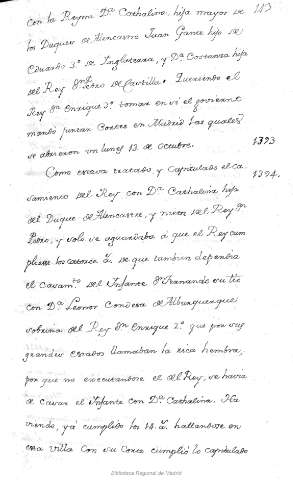 con la Reyna D.ª Cathalina, hija mayor de
los Duques de Alencastre Juan Gante hijo de
Eduardo 3.º de Inglaterra, y D.ª Costanza hija
del Rey D.n Pedro de Castilla. Queriendo el
Rey D.n Enrique 3.º tomar en si el
mando juntar Cortes en Madrid las quales
se abrieron un lunes 13 de octubre.
1393
Como estava tratado y Capitulado el ca
1394.
samiento del Rey con D.ª Cathalina hija
del Duque de Alencastre, y nieta del Rey D.n
Pedro, y solo se aguardaba á que el Rey cum
pliesse los catorce a.s de que tambien dependia
el casam.to del Infante D.n Fernando su tio
con D.ª Leonor Condesa de Alburquerque
sobrina del Rey D.n Enrique 2.º que por sus
grandes estados llamaban la rica hembra,
por que no efectuandose el del Rey, se havia
de casar el Infante con D.ª Cathalina. Ha
viendo, yá cumplido los 14 a.s hallandose en
esta villa con su Corte cumplió lo capitulado
Biblioteca Regional de Madrid